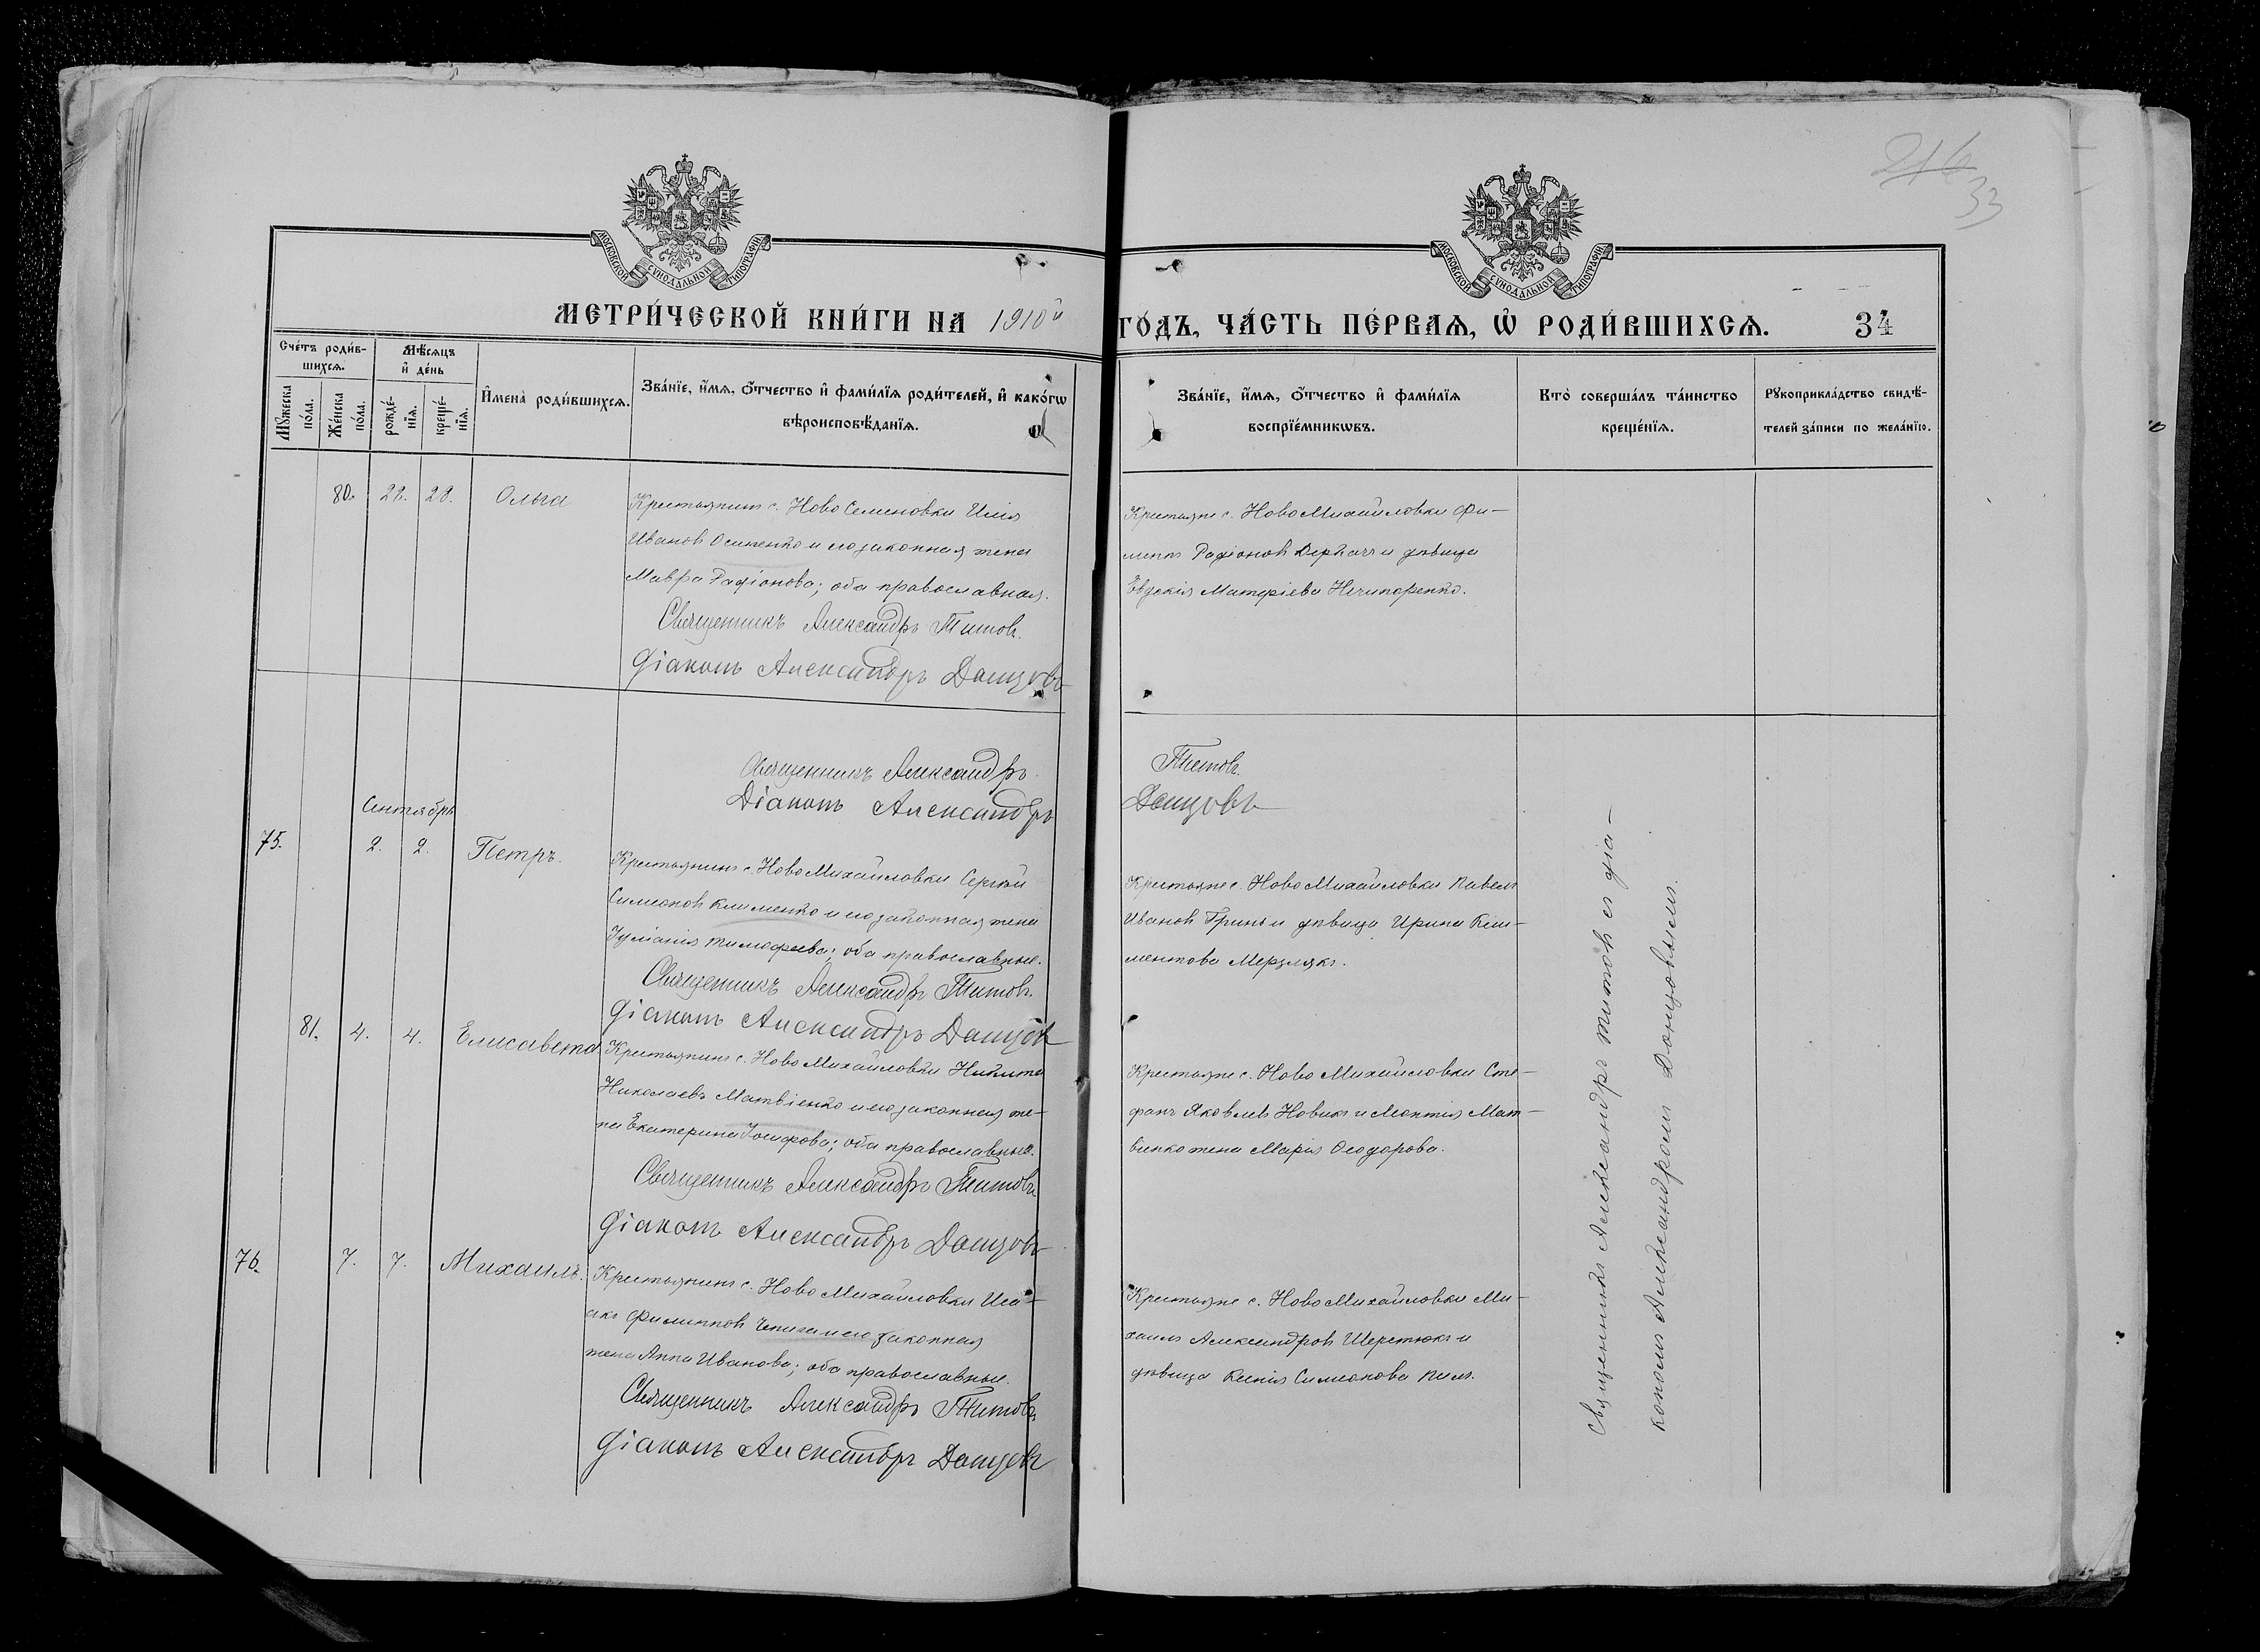 216
33
МОСКОВСКОЙ СУНОДАЛЬНОЙ ТИПОГРАФІИ
МОСКОВСКОЙ СУНОДАЛЬНОЙ ТИПОГРАФІИ
МЕТРИ́ЧЕСКОЙ КНИ́ГИ НА 1910й
ГО́ДЪ, ЧА́СТЬ ПЕ́РВАЯ, Ѡ҆ РОДИ́ВШИХСЯ. 34
Сче́тъ роди́в-
шихся.
Мꙋ́жеска по́ла.
Же́нска по́ла.
Мѣ́сяцъ
и҆ де́нь
рожде́-
нїя.
креще́-
нїя.
И҆мена̀ роди́вшихся.
Зва́нїе, и҆́мя, ѻ҆́тчество и҆ фами́лїя роди́телей, и҆ како́гѡ
вѣроисповѣ́данїя.
Зва́нїе, и҆́мя, ѻ҆́тчество и҆ фами́лїя
воспрїе́мникѡвъ.
Кто̀ соверша́лъ та́инство
креще́нїя.
Рꙋкоприкла́дство свидѣ́-
телей за́писи по жела́нїю.
80. 22. 28. Ольга
Крестьянинъ с. Ново Семеновки Илія
Иванов Осипенко и его законная жена
Мавра Радіонова; оба православная.
Священникъ Александръ Титовъ.
Діаконъ Александръ Донцовъ
Крестьяне с. Ново Михайловки Фи-
липпъ Радіонов Деркачъ и дѣвица
Евдокія Матфіева Нечипоренко.
Священникъ Александръ Титовъ.
Діаконъ Александръ Донцовъ
Сентябрь
75. 2. 2. Петръ.
Крестьянинъ с. Ново Михайловки Сергѣй
Симеонов Клименко и его законная жена
Іуліанія Тимофеева; оба православные.
Священникъ Александръ Титовъ.
Діаконъ Александръ Донцов
Крестьяне с. Ново Михайловки Павелъ
Иванов Гринь и дѣвица Ирина Кли-
ментова Мерзлякъ.
81. 4. 4. Елисавета.
Крестьянинъ с. Ново Михайловки Никита
Николаевъ Матвіенко и его законная же-
на Екатерина Іосифова; оба православные.
Священникъ Александръ Титовъ
Діаконъ Александръ Донцовъ
Крестьяне с. Ново Михайловки Сте-
фанъ Яковлев Новикъ и Леонтія Мат-
віенко жена Марія Ѳеодорова.
76. 7. 7. Михаилъ.
Крестьянинъ с. Ново Михайловки Иса-
акъ Филиппов и его законная
жена Анна Иванова; оба православные.
Священникъ Александръ Титовъ
Діаконъ Александръ Донцовъ
Крестьяне с. Ново Михайловки Ми-
хаилъ Александров Шерстюкъ и
дѣвица Ксенія Симеонова
Священникъ Александръ Титов съ діа-
кономъ Александромъ Донцовымъ.